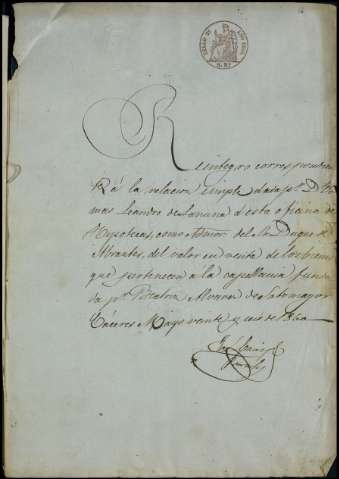 Reintegro correspondien
te á la relacion simple dada pr. D. To
mas Leandro de la á esta oficina de
Hipotecas, como Admor. del Sr. Duque de
Abrantes, del valor en de los bienes
que pertenecen a la capellanía funda
da pr. Alvarez de Sotomayor
Cáceres Mayo veinte y seis de 1860